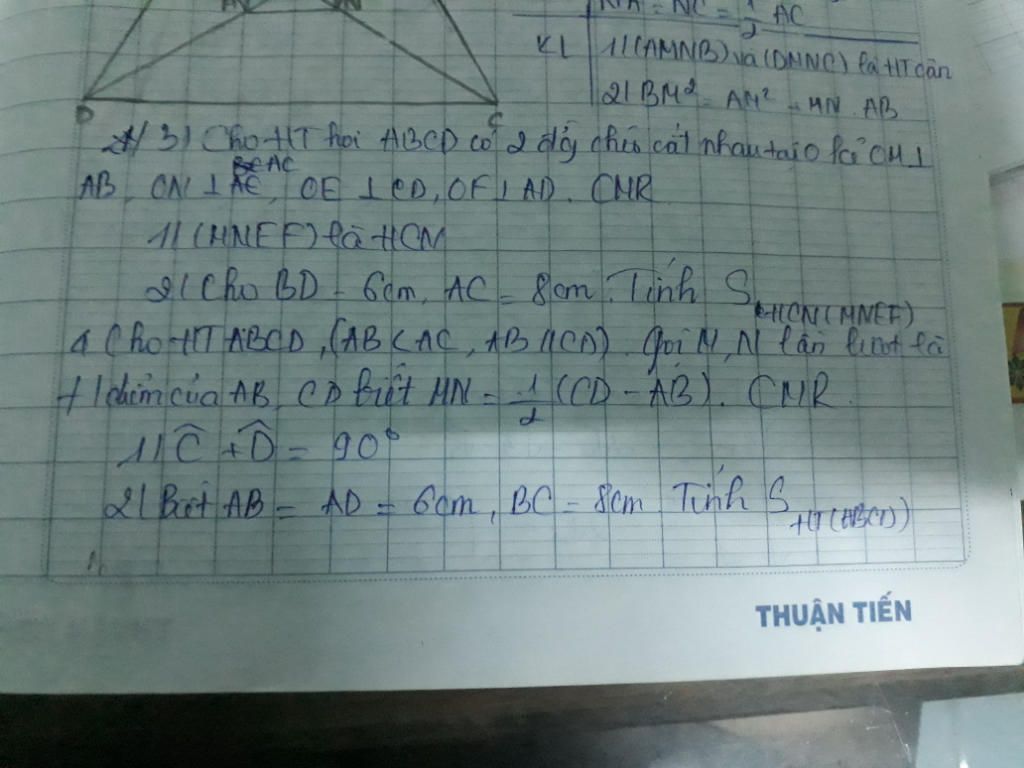 = NC = 1/2 AC
D
C
KL
1/ (AMNB) và (DMNC) là HT cân
2/ BM² = AM² = MN . AB
3/ Cho HT hoi ABCD có 2 đg chéo cắt nhau tại O kẻ OM ⊥
AC
AB, ON ⊥ , OE ⊥ CD, OF ⊥ AD. CMR
1/ (MNEF) là HCN
2/ Cho BD = 6cm, AC = 8cm. Tính S HCN (MNEF)
4 Cho HT ABCD, (AB < AC, AB // CD). Gọi M, N lần lượt là
điểm của AB, CD biết MN = 1/2 (CD - AB). CMR
1/ Ĉ + D̂ = 90°
2/ Biết AB = AD = 6cm, BC = 8cm Tính S HT (ABCD)
THUẬN TIẾN